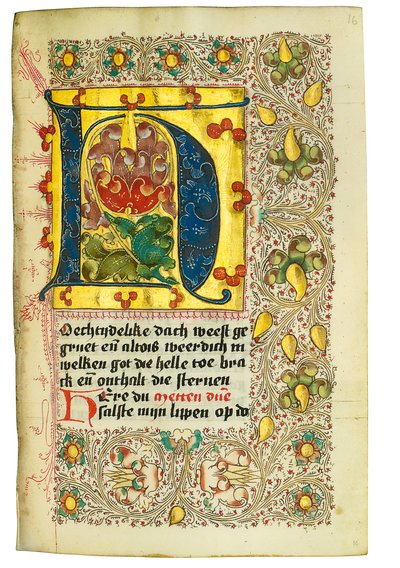 16
H
oechtydelike dach weest ge
gruet eñ altois weerdich in
welken got die helle toe bra
ck eñ onthalt die sternen
HEre du Metten
salste mijn lippen op do